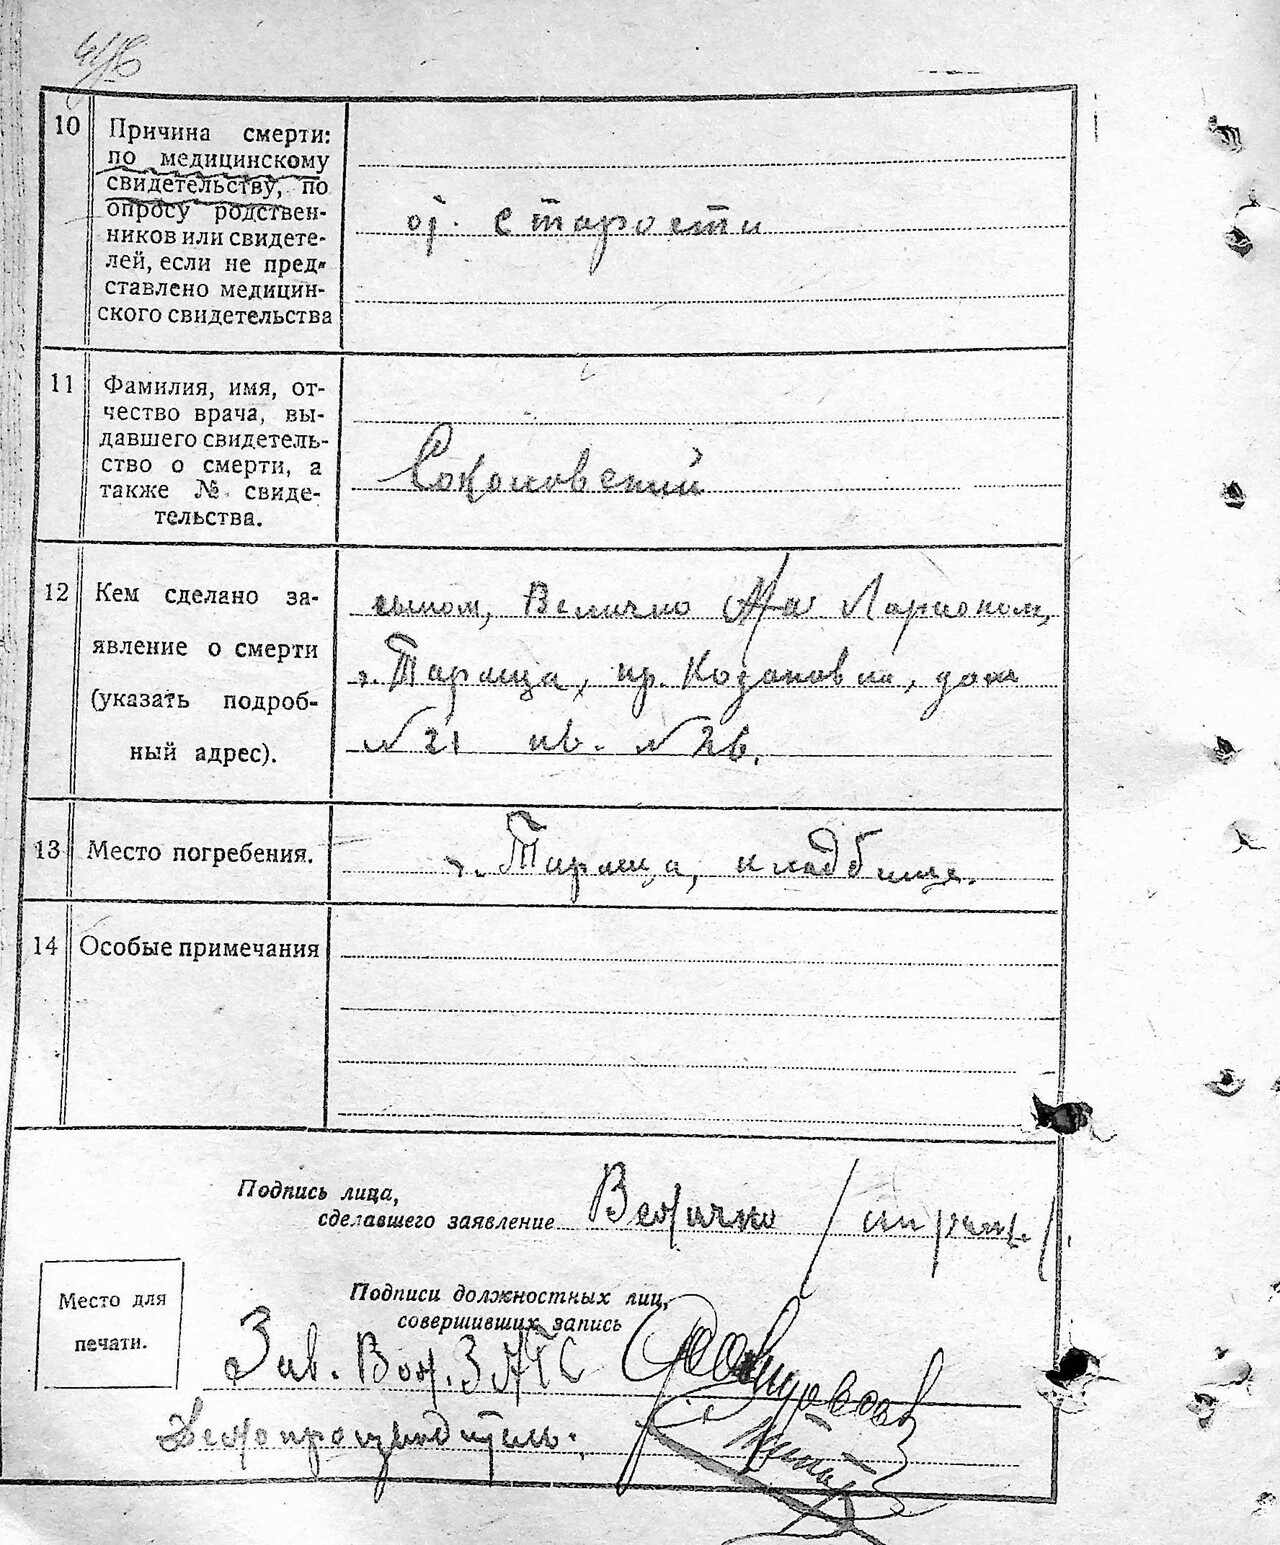 10
Причина смерти:
по медицинскому
свидетельству, по
опросу родствен-
ников или свидете-
лей, если не пред-
ставлено медицин-
ского свидетельства
от старости
11
Фамилия, имя, от-
чество врача, вы-
давшего свидетель-
ство о смерти, а
также № свиде-
тельства.
12
Кем сделано за-
явление о смерти
(указать подроб-
ный адрес).
сыном, Величко Ларионом,
г. Тараща, дом
№ 21 кв. №
13
Место погребения.
г. Тараща, кладбище.
14
Особые примечания
Подпись лица,
сделавшего заявление Величко
Место для
печати.
Подписи должностных лиц,
совершивших запись
Зав. ЗАГС
Делопроизводитель: